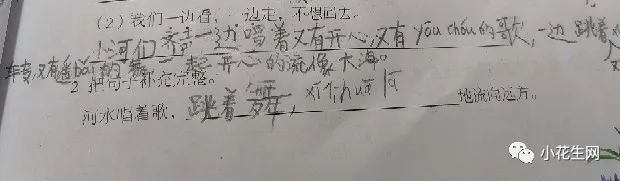 （2）我们一边看，一边走，不想回去。
小河们 一边唱着又有开心，又有yōu chóu的歌，一边 跳着
又有 的舞 一起开心的流像大海。
2 把句子补充完整。
河水唱着歌，跳着舞，xī huā lā 地流向远方。
小花生网